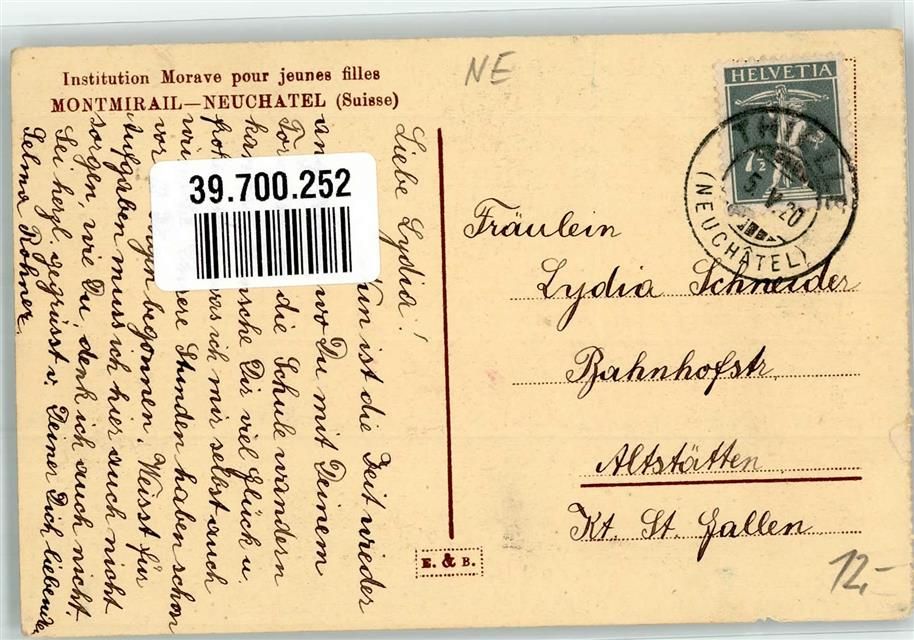 Institution Morave pour jeunes filles
MONTMIRAIL—NEUCHATEL (Suisse)
NE
HELVETIA
7½
THIELLE
5 V 20
(NEUCHÂTEL)
39.700.252
Liebe Lydia!
Nun ist die Zeit wieder
wo Du mit Deinem
die Schule wandern
wünsche Dir viel Glück u
was ich mir selbst auch
unsere Stunden haben schon
vor begonnen. Weisst für
Aufgaben muss ich hier auch nicht
sorgen, wie Du, denk ich auch nicht.
Sei herzl. gegrüsst v. Deiner Dich liebende
Selma Rohner.
Fräulein
Lydia Schneider
Bahnhofstr.
Altstätten
Kt. St. Gallen
E. & B.
12,-